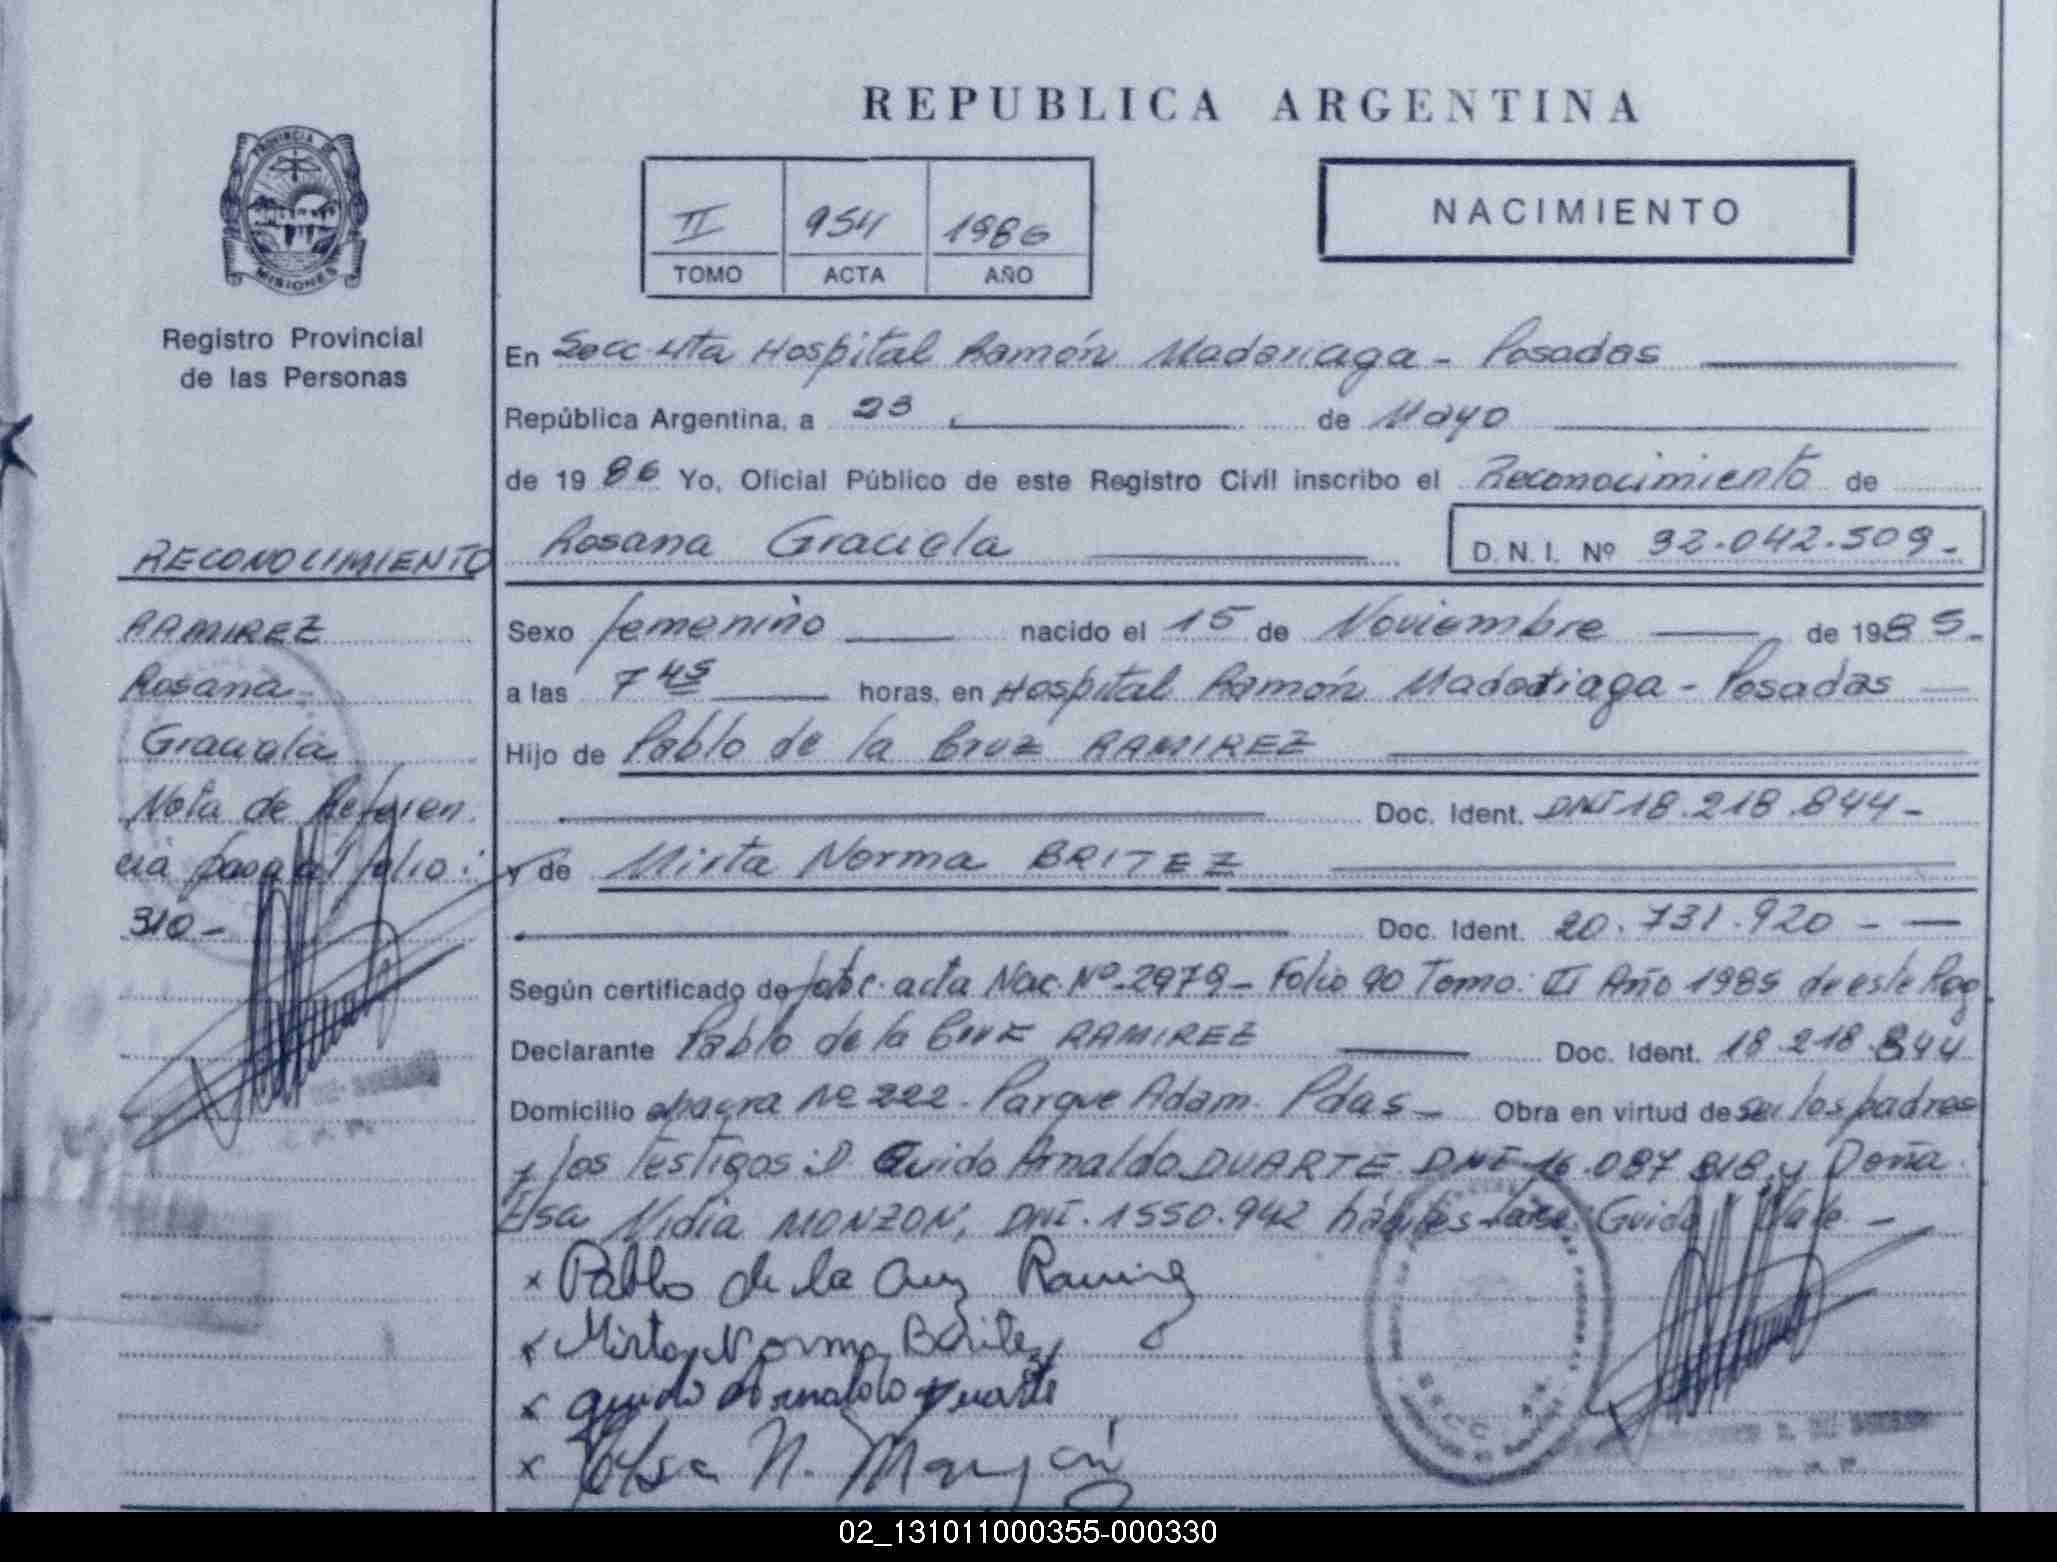 REPUBLICA ARGENTINA
PROVINCIA DE
MISIONES
Registro Provincial
de las Personas
II 954 1986
TOMO ACTA AÑO
NACIMIENTO
En Secc 4ta Hospital Ramón Madariaga - Posadas
República Argentina, a 23 de Mayo
de 1986 Yo, Oficial Público de este Registro Civil inscribo el Reconocimiento de
Rosana Graciela D.N.I. Nº 32.042.509.-
RECONOCIMIENTO
RAMIREZ
Rosana
Graciela
Nota de Referen
cia pasa al folio:
310-
Sexo femenino nacido el 15 de Noviembre de 1985.
a las 7 45 horas, en Hospital Ramón Madariaga - Posadas
Hijo de Pablo de la Cruz RAMIREZ
Doc. Ident. DNI 18.218.844-
y de Mirta Norma BRITEZ
Doc. Ident. 20.731.920 -
Según certificado de fotoc. acta Nac. Nº 2979- Folio 90 Tomo: III Año 1985 de este Reg
Declarante Pablo de la Cruz RAMIREZ Doc. Ident. 18.218.844
Domicilio chacra Nº 222. Parque Adam. Pdas- Obra en virtud de ser los padres
y los testigos: D Guido Arnaldo DUARTE DNI 16.087.818 y Doña
Elsa Nidia MONZON, DNI. 1550.942 hábiles Guido Vale -
x Pablo de la Cruz Ramirez
x Mirta Norma Britez
x guido Arnaldo Duarte
x Elsa N. Monzón
02_131011000355-000330